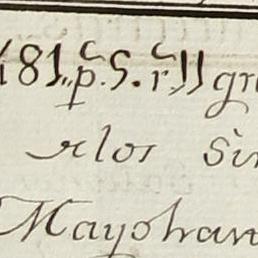 181„ p.^c S. r.^c 11 gr
rlos Sin
Mayohan